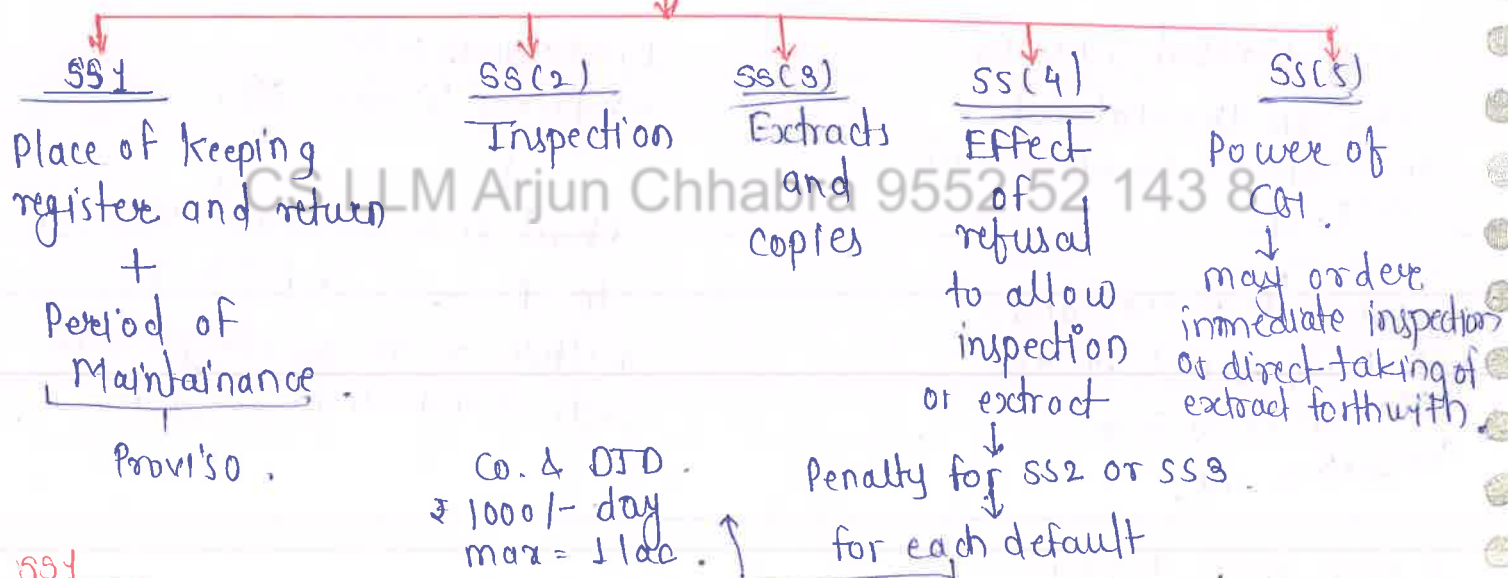 SS1
Place of keeping
register and return
+
Period of
Maintainance.
Proviso.
SS(2)
Inspection
SS(3)
Extracts
and
copies
SS(4)
Effect
of
refusal
to allow
inspection
or extract
Penalty for SS2 or SS3.
for each default
Co. & OID.
₹ 1000/- day
max = 1 lac.
SS(5)
Power of
CG.
may order
immediate inspection
or direct taking of
extract forthwith.
CS LLM Arjun Chhabra 9552 52 143 8
SS1